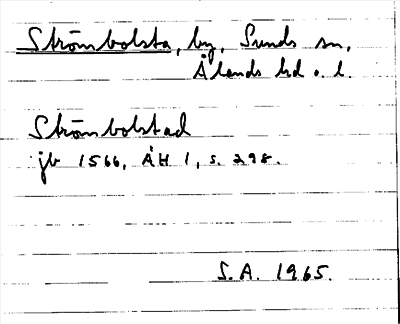 Strömbolsta, by, Sunds sn,
Ålands hd o. l.
Strömbolstad
jb 1566, ÅH 1, s. 298.
S.A. 1965.